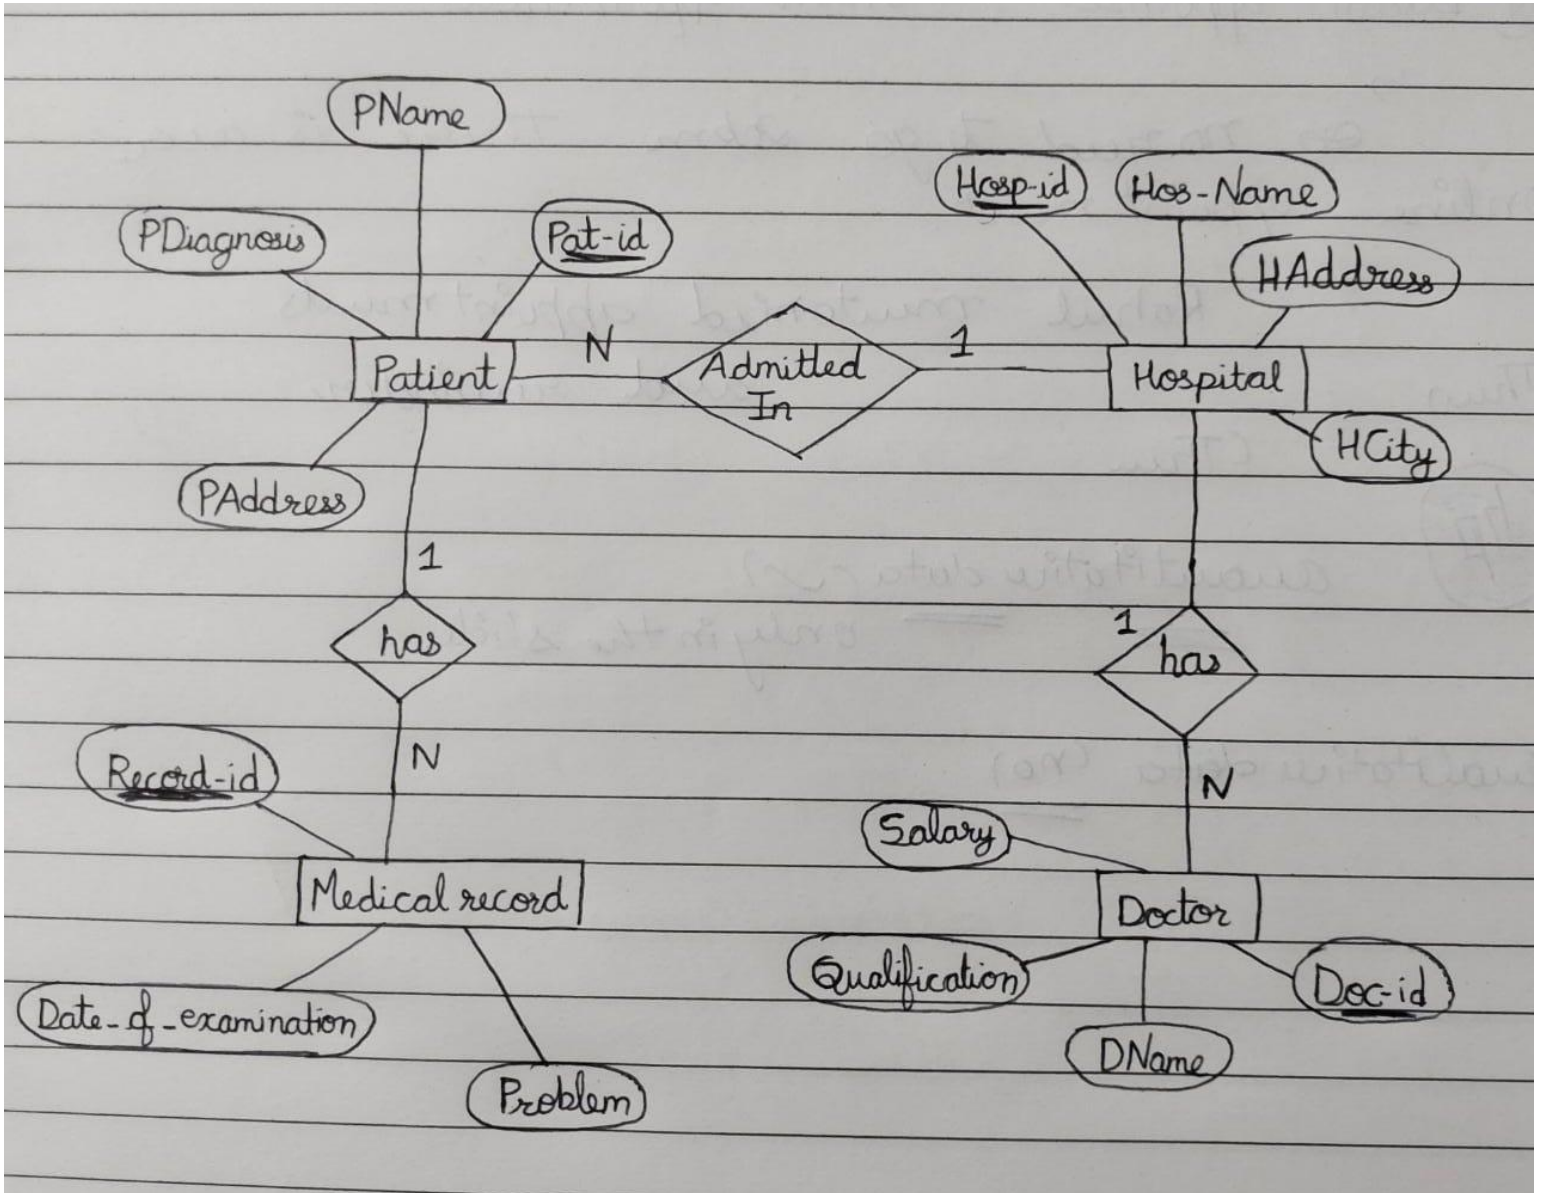 PName
Hosp-id
Hos-Name
PDiagnosis
Pat-id
HAddress
N
1
Patient
Admitted
In
Hospital
HCity
PAddress
1
has
1
has
N
Record-id
N
Salary
Medical record
Doctor
Qualification
Doc-id
Date_of_examination
DName
Problem